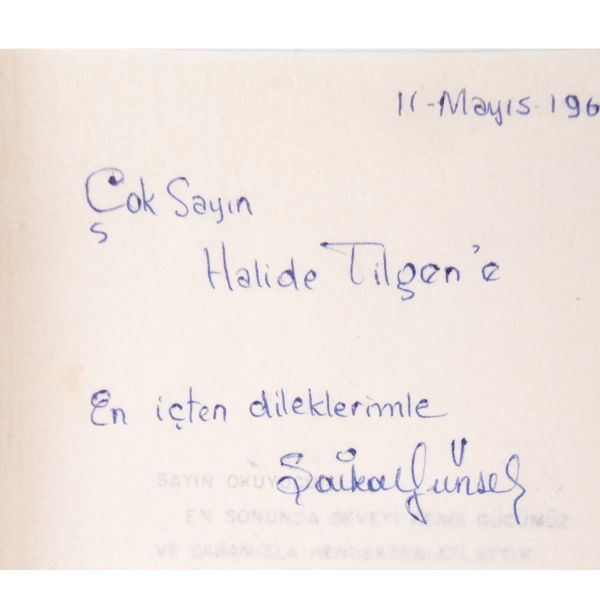 11-Mayıs-196
Çok Sayın
Halide Tilgen'e
En içten dileklerimle
Günsel
SAYIN OKUYUC
EN SONUNDA DEVEYİ KENDİ GÜCÜMÜZ
VE ÇABAMIZLA HENDEKTEN ATLATTIK